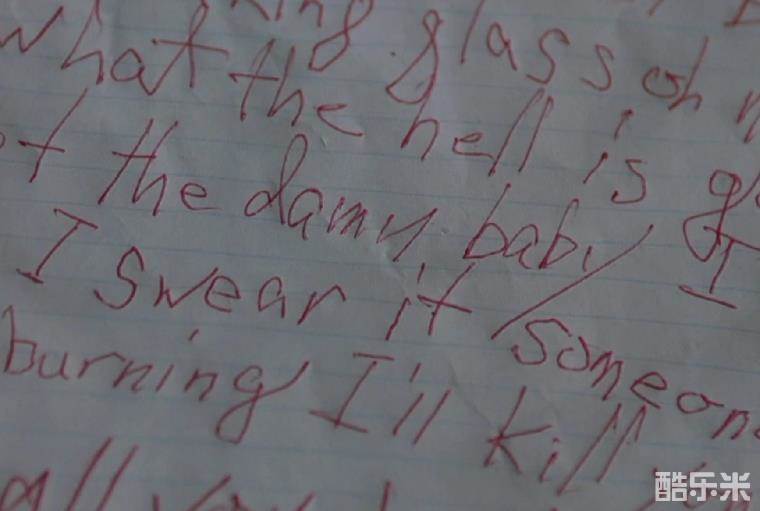 glass oh
What the hell is
the damn baby I
I swear it someon
burning I'll kill
all
酷乐米